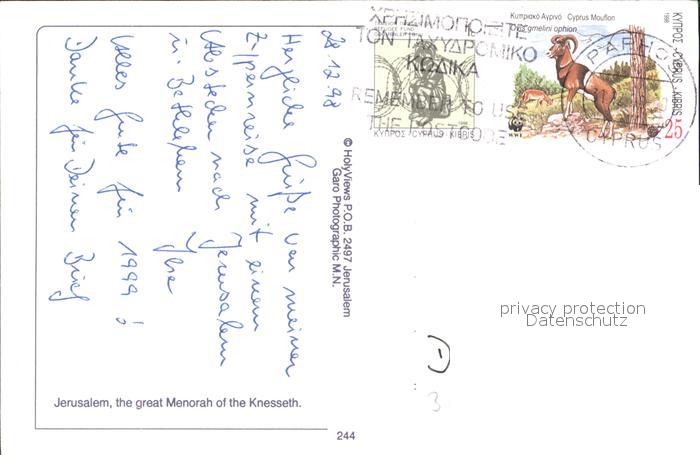 28.12.98
Herzliche Grüße von meiner
Zypernreise mit einem
Abstecher nach Jerusalem
in Bethlehem
Alles Gute für 1999!
Danke für Deinen Brief
Jerusalem, the great Menorah of the Knesseth.
244
© HolyViews P.O.B. 2497 Jerusalem
Garo Photographic M.N.
ΧΡΗΣΙΜΟΠΟΙΕΙΤΕ
ΤΟΝ ΤΑΧΥΔΡΟΜΙΚΟ
ΚΩΔΙΚΑ
REMEMBER TO USE
THE POSTCODE
ΚΥΠΡΟΣ CYPRUS KIBRIS
Κυπριακό Αγρινό Cyprus Mouflon
Ovis gmelini ophion
ΚΥΠΡΟΣ · CYPRUS · KIBRIS
1998
25
WWF
PAPHOS
CYPRUS
privacy protection
Datenschutz